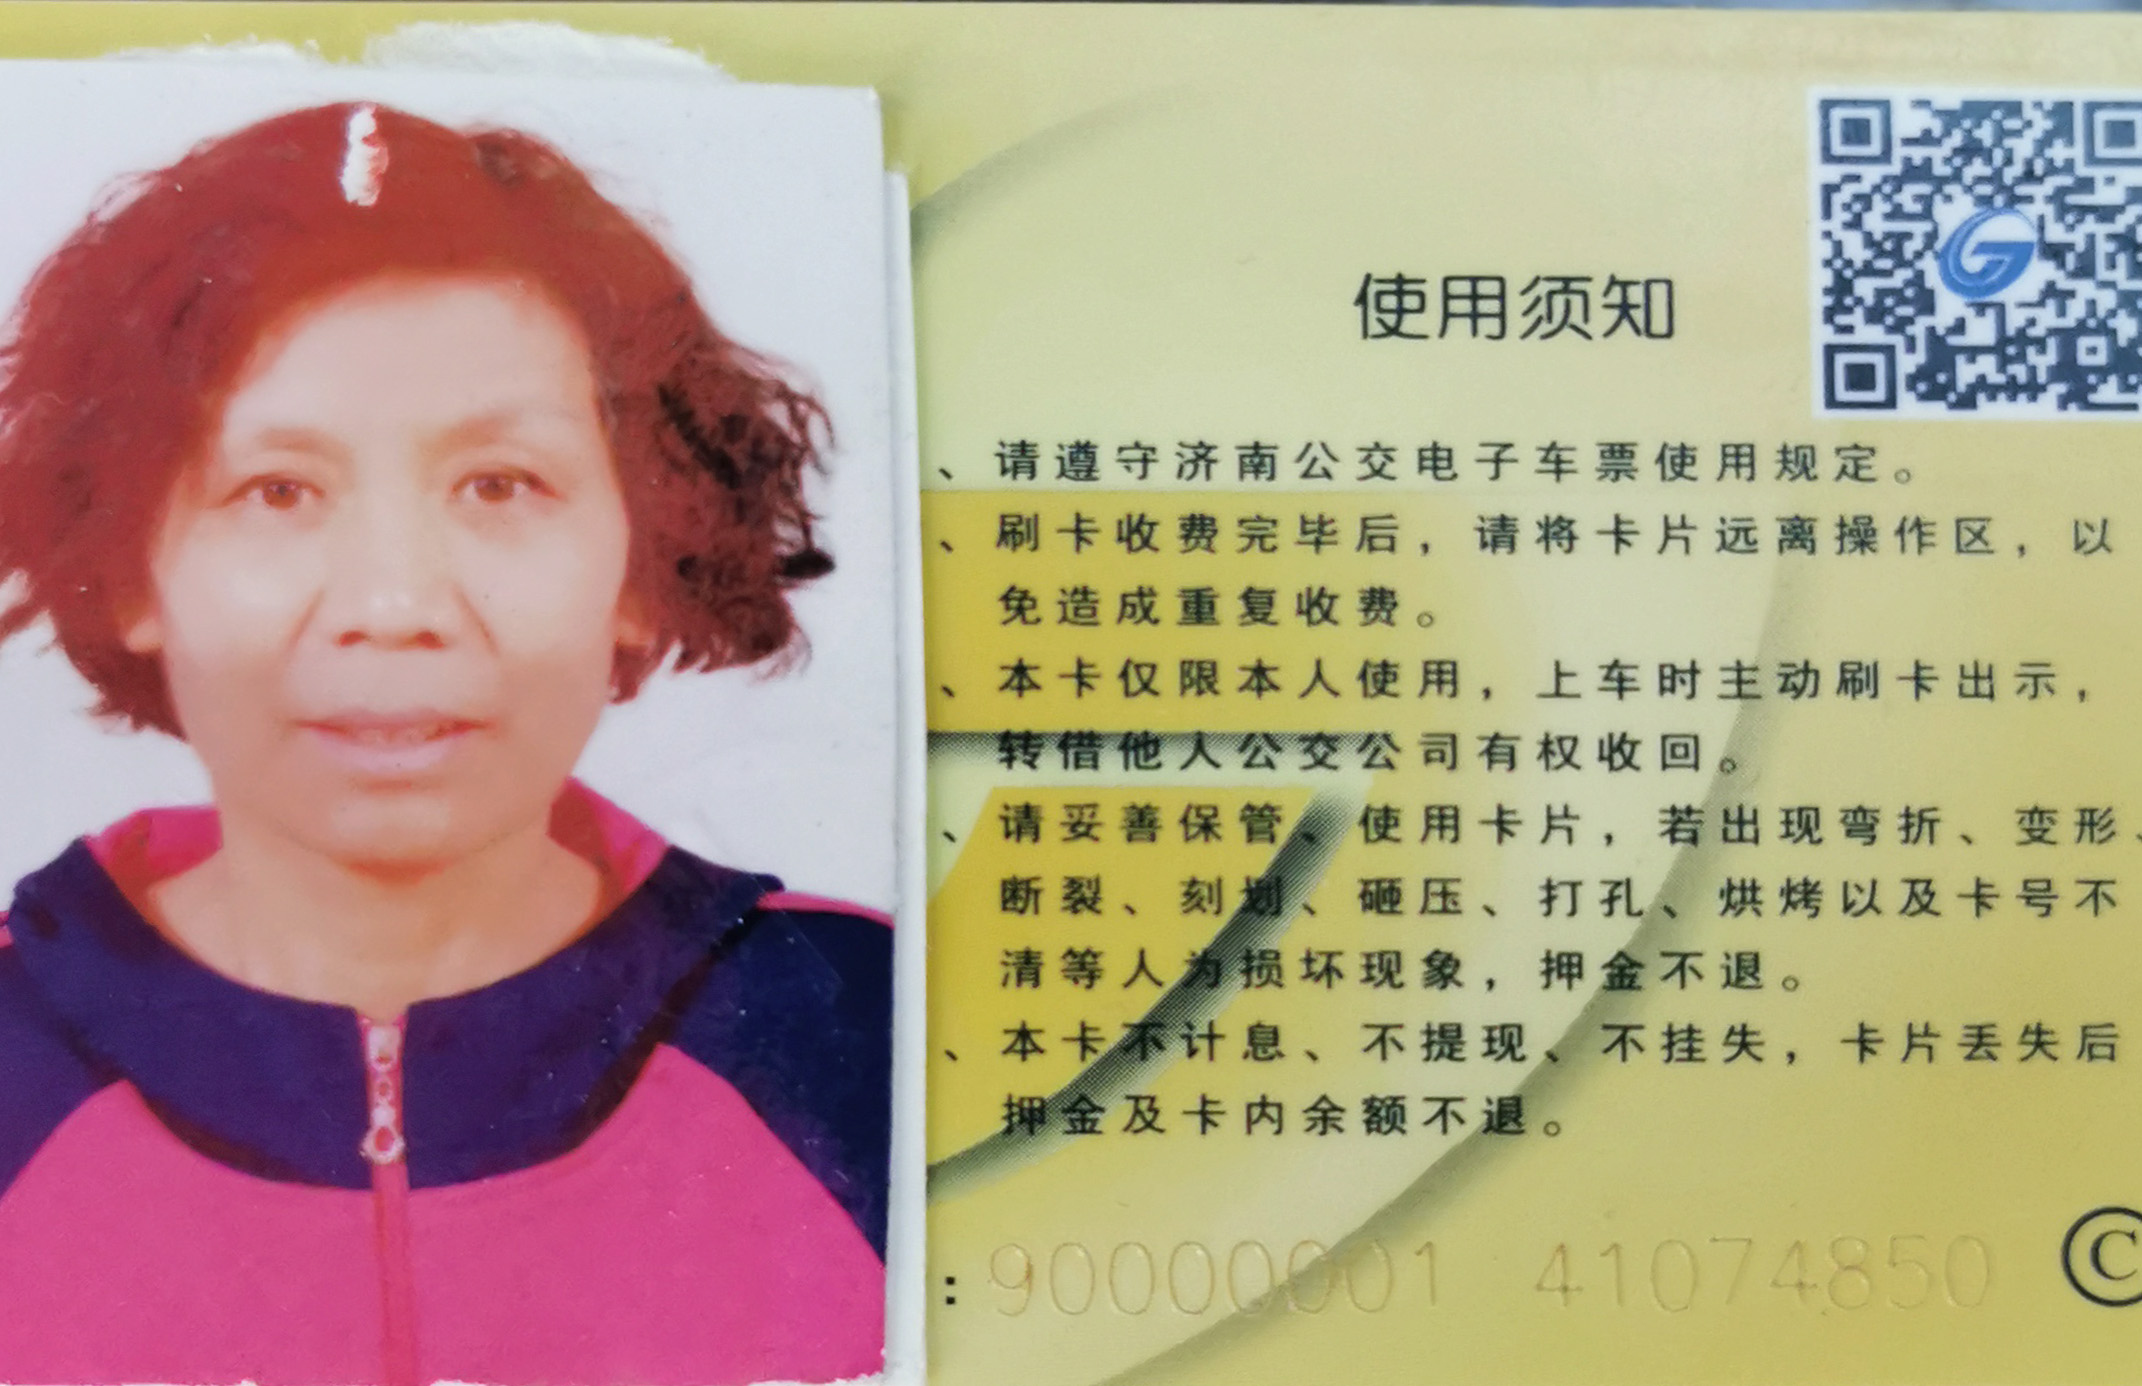 使用须知
、请遵守济南公交电子车票使用规定。
、刷卡收费完毕后，请将卡片远离操作区，以
免造成重复收费。
、本卡仅限本人使用，上车时主动刷卡出示，
转借他人公交公司有权收回。
、请妥善保管、使用卡片，若出现弯折、变形、
断裂、刻划、砸压、打孔、烘烤以及卡号不
清等人为损坏现象，押金不退。
、本卡不计息、不提现、不挂失，卡片丢失后
押金及卡内余额不退。
: 90000001 41074850 ©